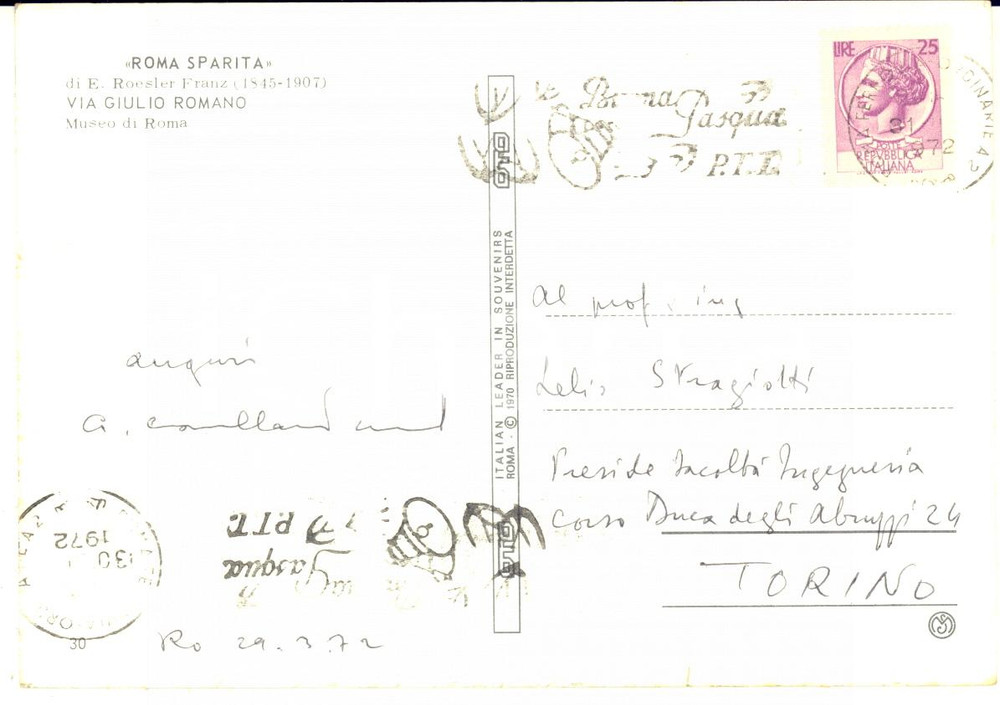 «ROMA SPARITA»
di E. Roesler Franz (1845-1907)
VIA GIULIO ROMANO
Museo di Roma
LIRE 25
POSTE
REPVBBLICA
ITALIANA
1972
Buona
Pasqua
P.T.T.
OTO
ITALIAN LEADER IN SOUVENIRS
ROMA - © 1970 RIPRODUZIONE INTERDETTA
OTO
Al prof. ing
Lelio Stragiotti
Preside Facoltà Ingegneria
Corso Duca degli Abruzzi 24
TORINO
auguri
a.
P.T.T.
Pasqua
1972
30
Ro 29.3.72